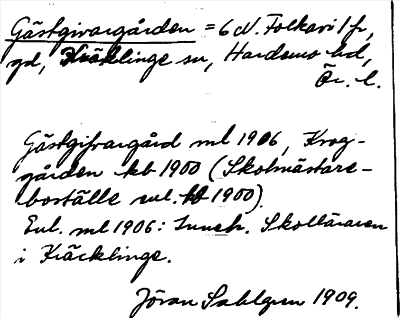 Gästgivargården = 6 N. Folkavi 1 fr,
gd, Kräcklinge sn, Hardemo hd,
Ör. l.
Gästgifvargård ml 1906, Krog-
gården kb 1900 (Skolmästare-
boställe enl. kb 1900).
Enl. ml 1906: Inneh. Skolläraren
i Kräcklinge.
Jöran Sahlgren 1909.